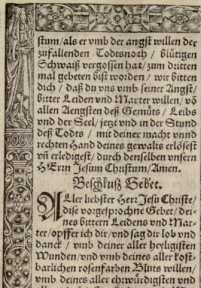 stum/als er vmb der angst willen der
zufallenden Todtsnoth / blütigen
Schwaiß vergossen hat/ zum dritten
mal gebeten bist worden / wir bitten
dich / daß du vns vmb seiner Angst/
bitter Leiden vnd Marter willen/ vō
allen Aengsten deß Gemüts / Leibs
vnd der Seel / jetzt vnd in der Stund
deß Todts / mit deiner macht vnnd
rechten Hand deines gewalts erlösest
vñ erledigest/ durch denselben vnsern
HErrn Jesum Christum/Amen.
Beschluß Gebet.
ALler liebster Herr Jesu Christe/
dise vorgesprochne Gebet/ dei-
nes bittern Leidens vnd Mar-
ter/opffer ich dir/vnd sag dir lob vnd
danck / vmb deiner aller heyligisten
Wunden/vnd vmb deines aller kost-
barlichen rosenfarben Bluts willen/
vmb deines aller ehrwürdigisten vnd